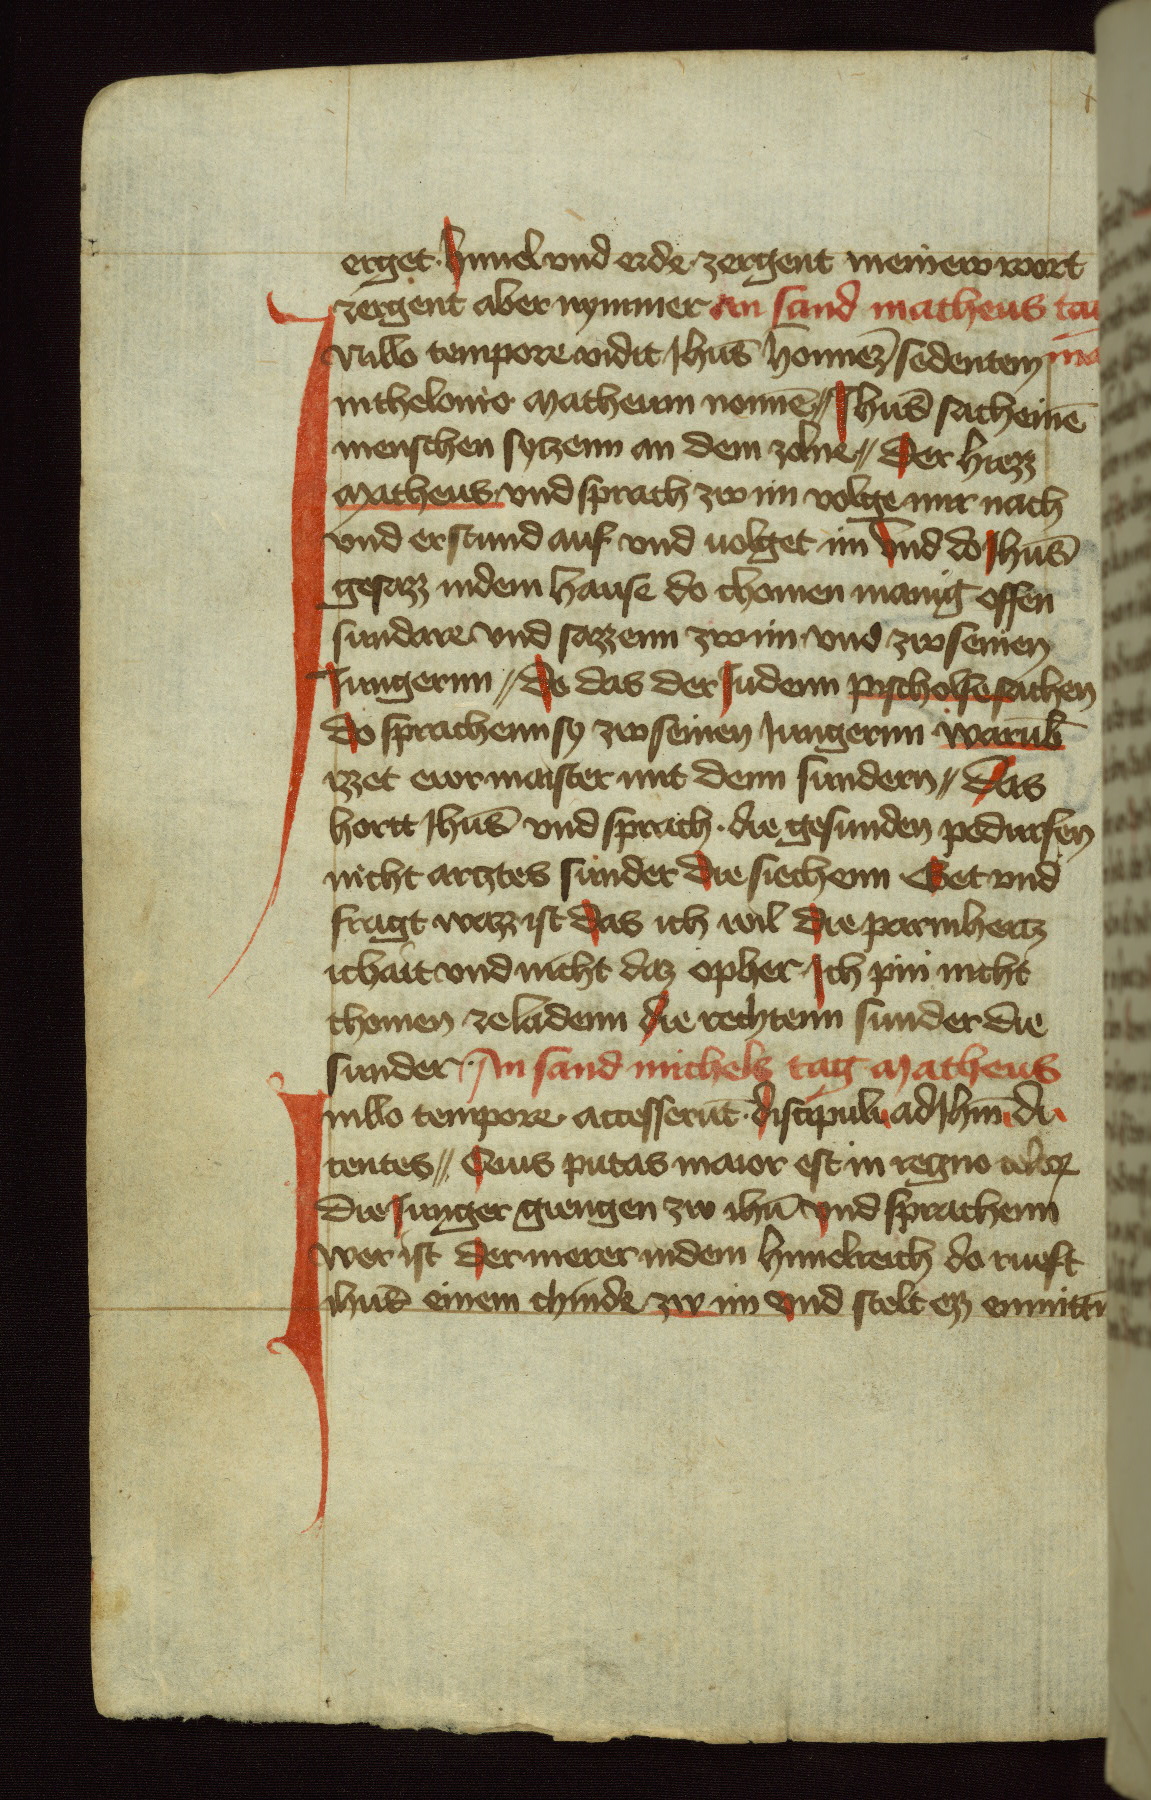 erget · himel vnd erde · zergent meinew wort
zergent aber nymmer An sand matheus tag
In illo tempore vidit Jhūs hominēz sedentem
in theloneo Matheum nomīe // Jhūs sach einē
menschen syczenn an dem zolne // Der hiezz
Matheus vnd sprach zw im volge mir nach
vnd er stund auf vnd uolget im Vnd do Jhūs
gesazz in dem hause do chomen manig offen
sundare vnd sazzenn zw im vnd zw seinen
Jungernn // Do das der Judenn pischolfe sachen
do sprachenn sy zw seinen Jungernn warūb
izzet ewr maister mit denn sundern // Das
hortt Jhūs vnd sprach · die gesunden pedurfen
nicht arcztes sunder die siechenn Get vnd
fragt wazz ist das ich wil die parmhercz
ichait vnd nicht daz opher Ich pin nicht
chomen ze ladenn die rechtenn sunder die
sunder · An sand michels tag Matheus
In illo tempore · accesserūt · discipuli ad Jhm̄ di
centes // Quis putas maior est in regno celoꝝ
Die Junger giengen zw ihū vnd sprachenn
wer ist der merer in dem himelreich do rueft
ihūs einem chinde zw im vnd stelt ez enmittn